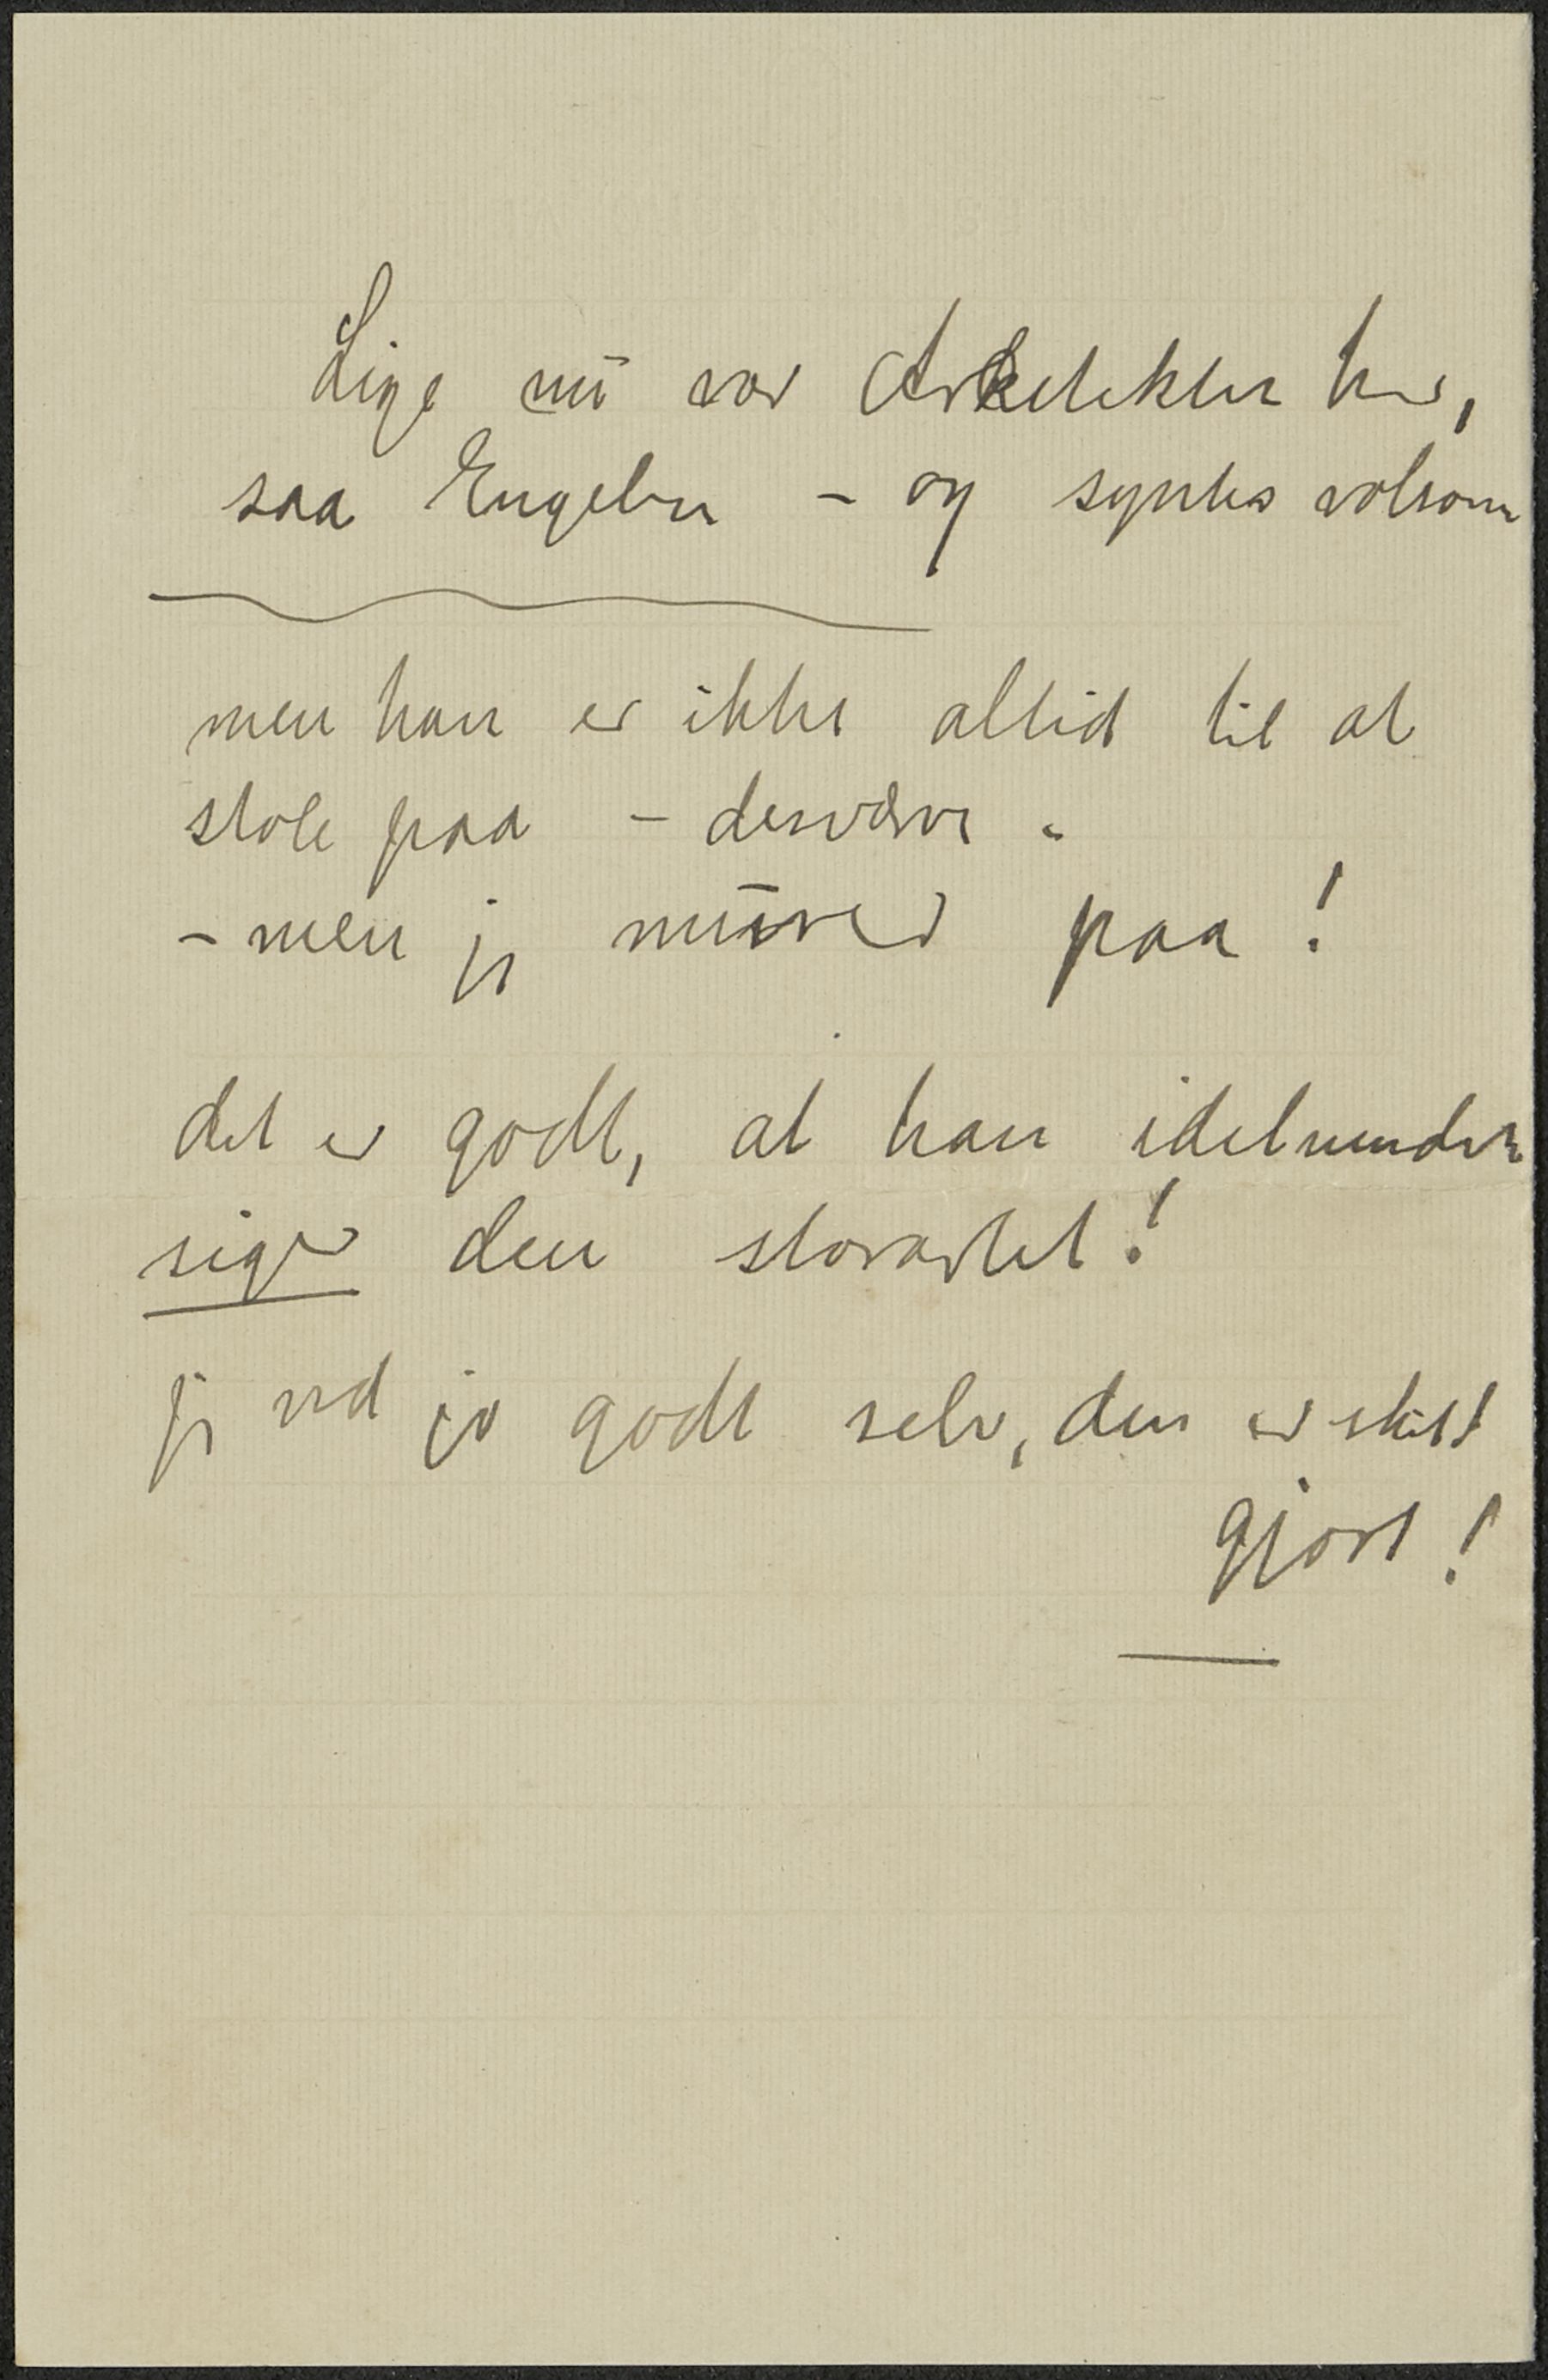 Lige nu var Arkitekten her,
saa Engelen – og syntes volsom
men han er ikke altid til at
stole paa – desværre.
– men jeg murer paa!
det er godt, at han idetmindste
siger den storartet!
jeg ved jo godt selv, den er skidt
gjort!